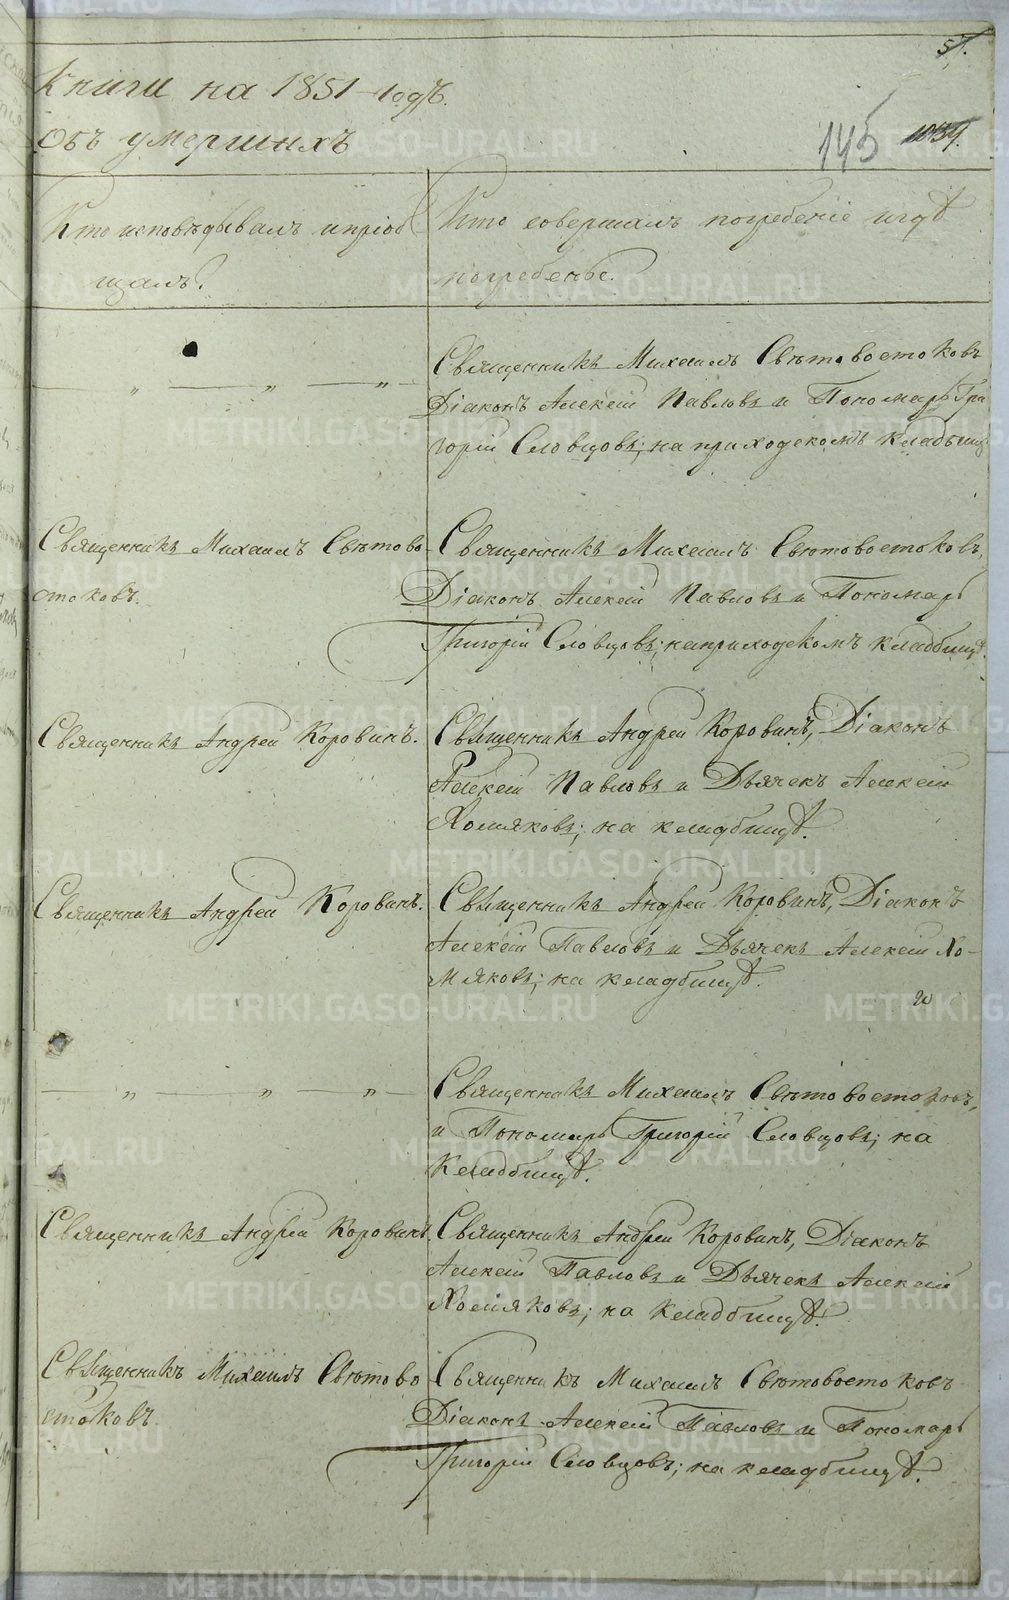 57.
Книги на 1851 годъ.
Объ умершихъ
145
1039.
Кто исповѣдывалъ и пріоб
щалъ.
Кто совершалъ погребеніе и гдѣ
погребены.
— „ — „ — „ —
Священникъ Михаилъ Свѣтовостоковъ
Діаконъ Алексій Павловъ и Пономарь Гри
горій Словцовъ; на приходскомъ кладбищѣ
Священникъ Михаилъ Свѣтово
стоковъ.
Священникъ Михаилъ Свѣтовостоковъ,
Діаконъ Алексій Павловъ и Пономарь
Григорій Словцовъ; на приходскомъ кладбищѣ.
Священникъ Андрей Коровинъ.
Священникъ Андрей Коровинъ, Діаконъ
Алексій Павловъ и Дьячекъ Алексій
Хомяковъ; на кладбищѣ.
Священникъ Андрей Коровинъ.
Священникъ Андрей Коровинъ, Діаконъ
Алексій Павловъ и Дьячекъ Алексій Хо-
мяковъ; на кладбищѣ.
— „ — „ — „ —
Священникъ Михаилъ Свѣтовостоковъ,
и Пономарь Григорій Словцовъ; на
кладбищѣ.
Священникъ Андрей Коровинъ.
Священникъ Андрей Коровинъ, Діаконъ
Алексій Павловъ и Дьячекъ Алексій
Хомяковъ; на кладбищѣ.
Священникъ Михаилъ Свѣтово
стоковъ.
Священникъ Михаилъ Свѣтовостоковъ
Діаконъ Алексій Павловъ и Пономарь
Григорій Словцовъ; на кладбищѣ.
METRIKI.GASO-URAL.RU